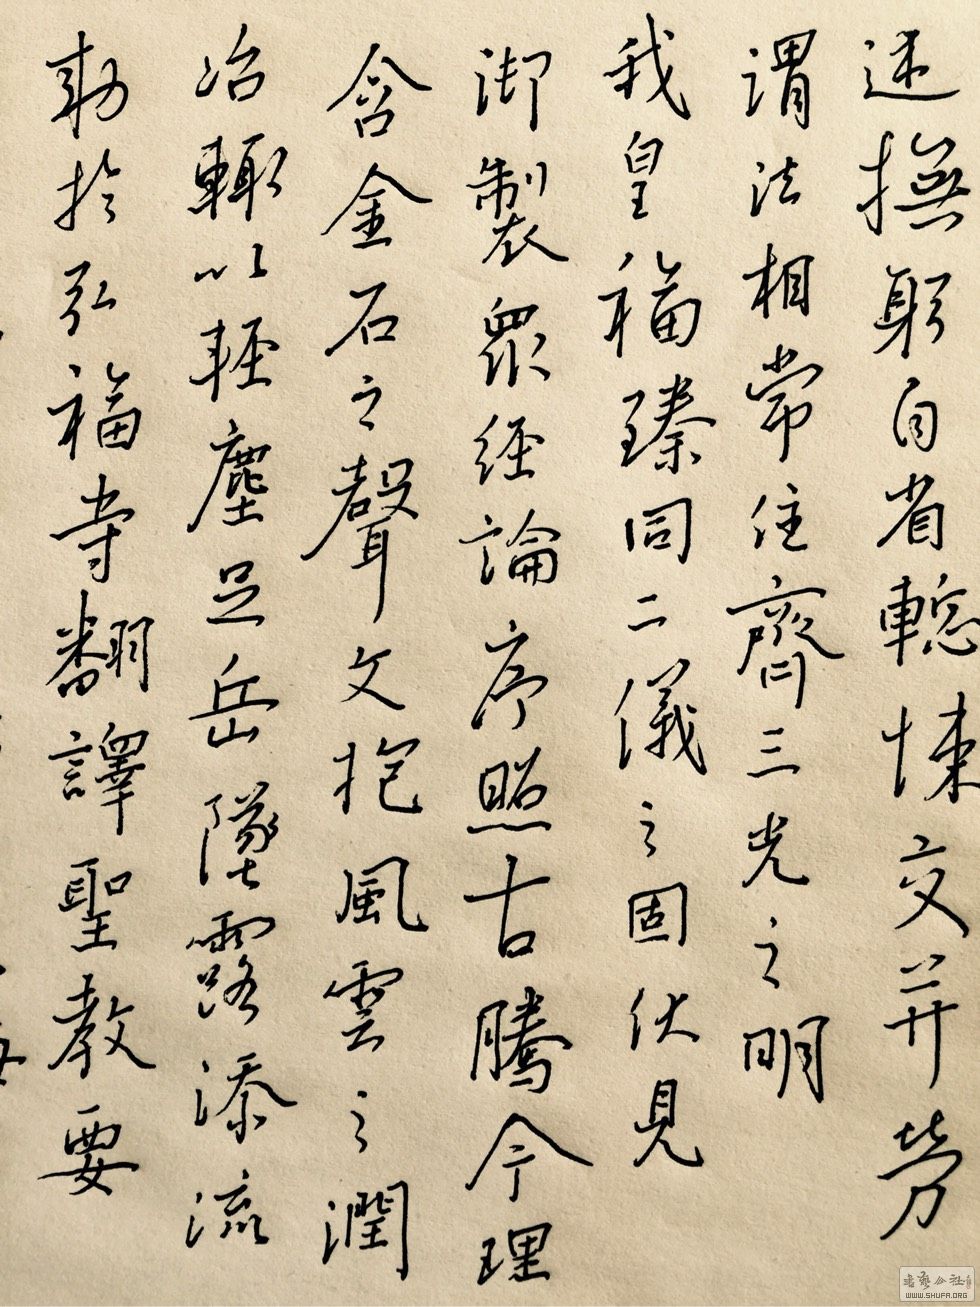 述撫躬自省慙悚交并勞
謂法相常住齊三光之明
我皇福臻同二儀之固伏見
御製眾經論序照古騰今理
含金石之聲文抱風雲之潤
治輒以輕塵足岳墜露添流
勅於弘福寺翻譯聖教要
書藝公社
WWW.SHUFA.ORG